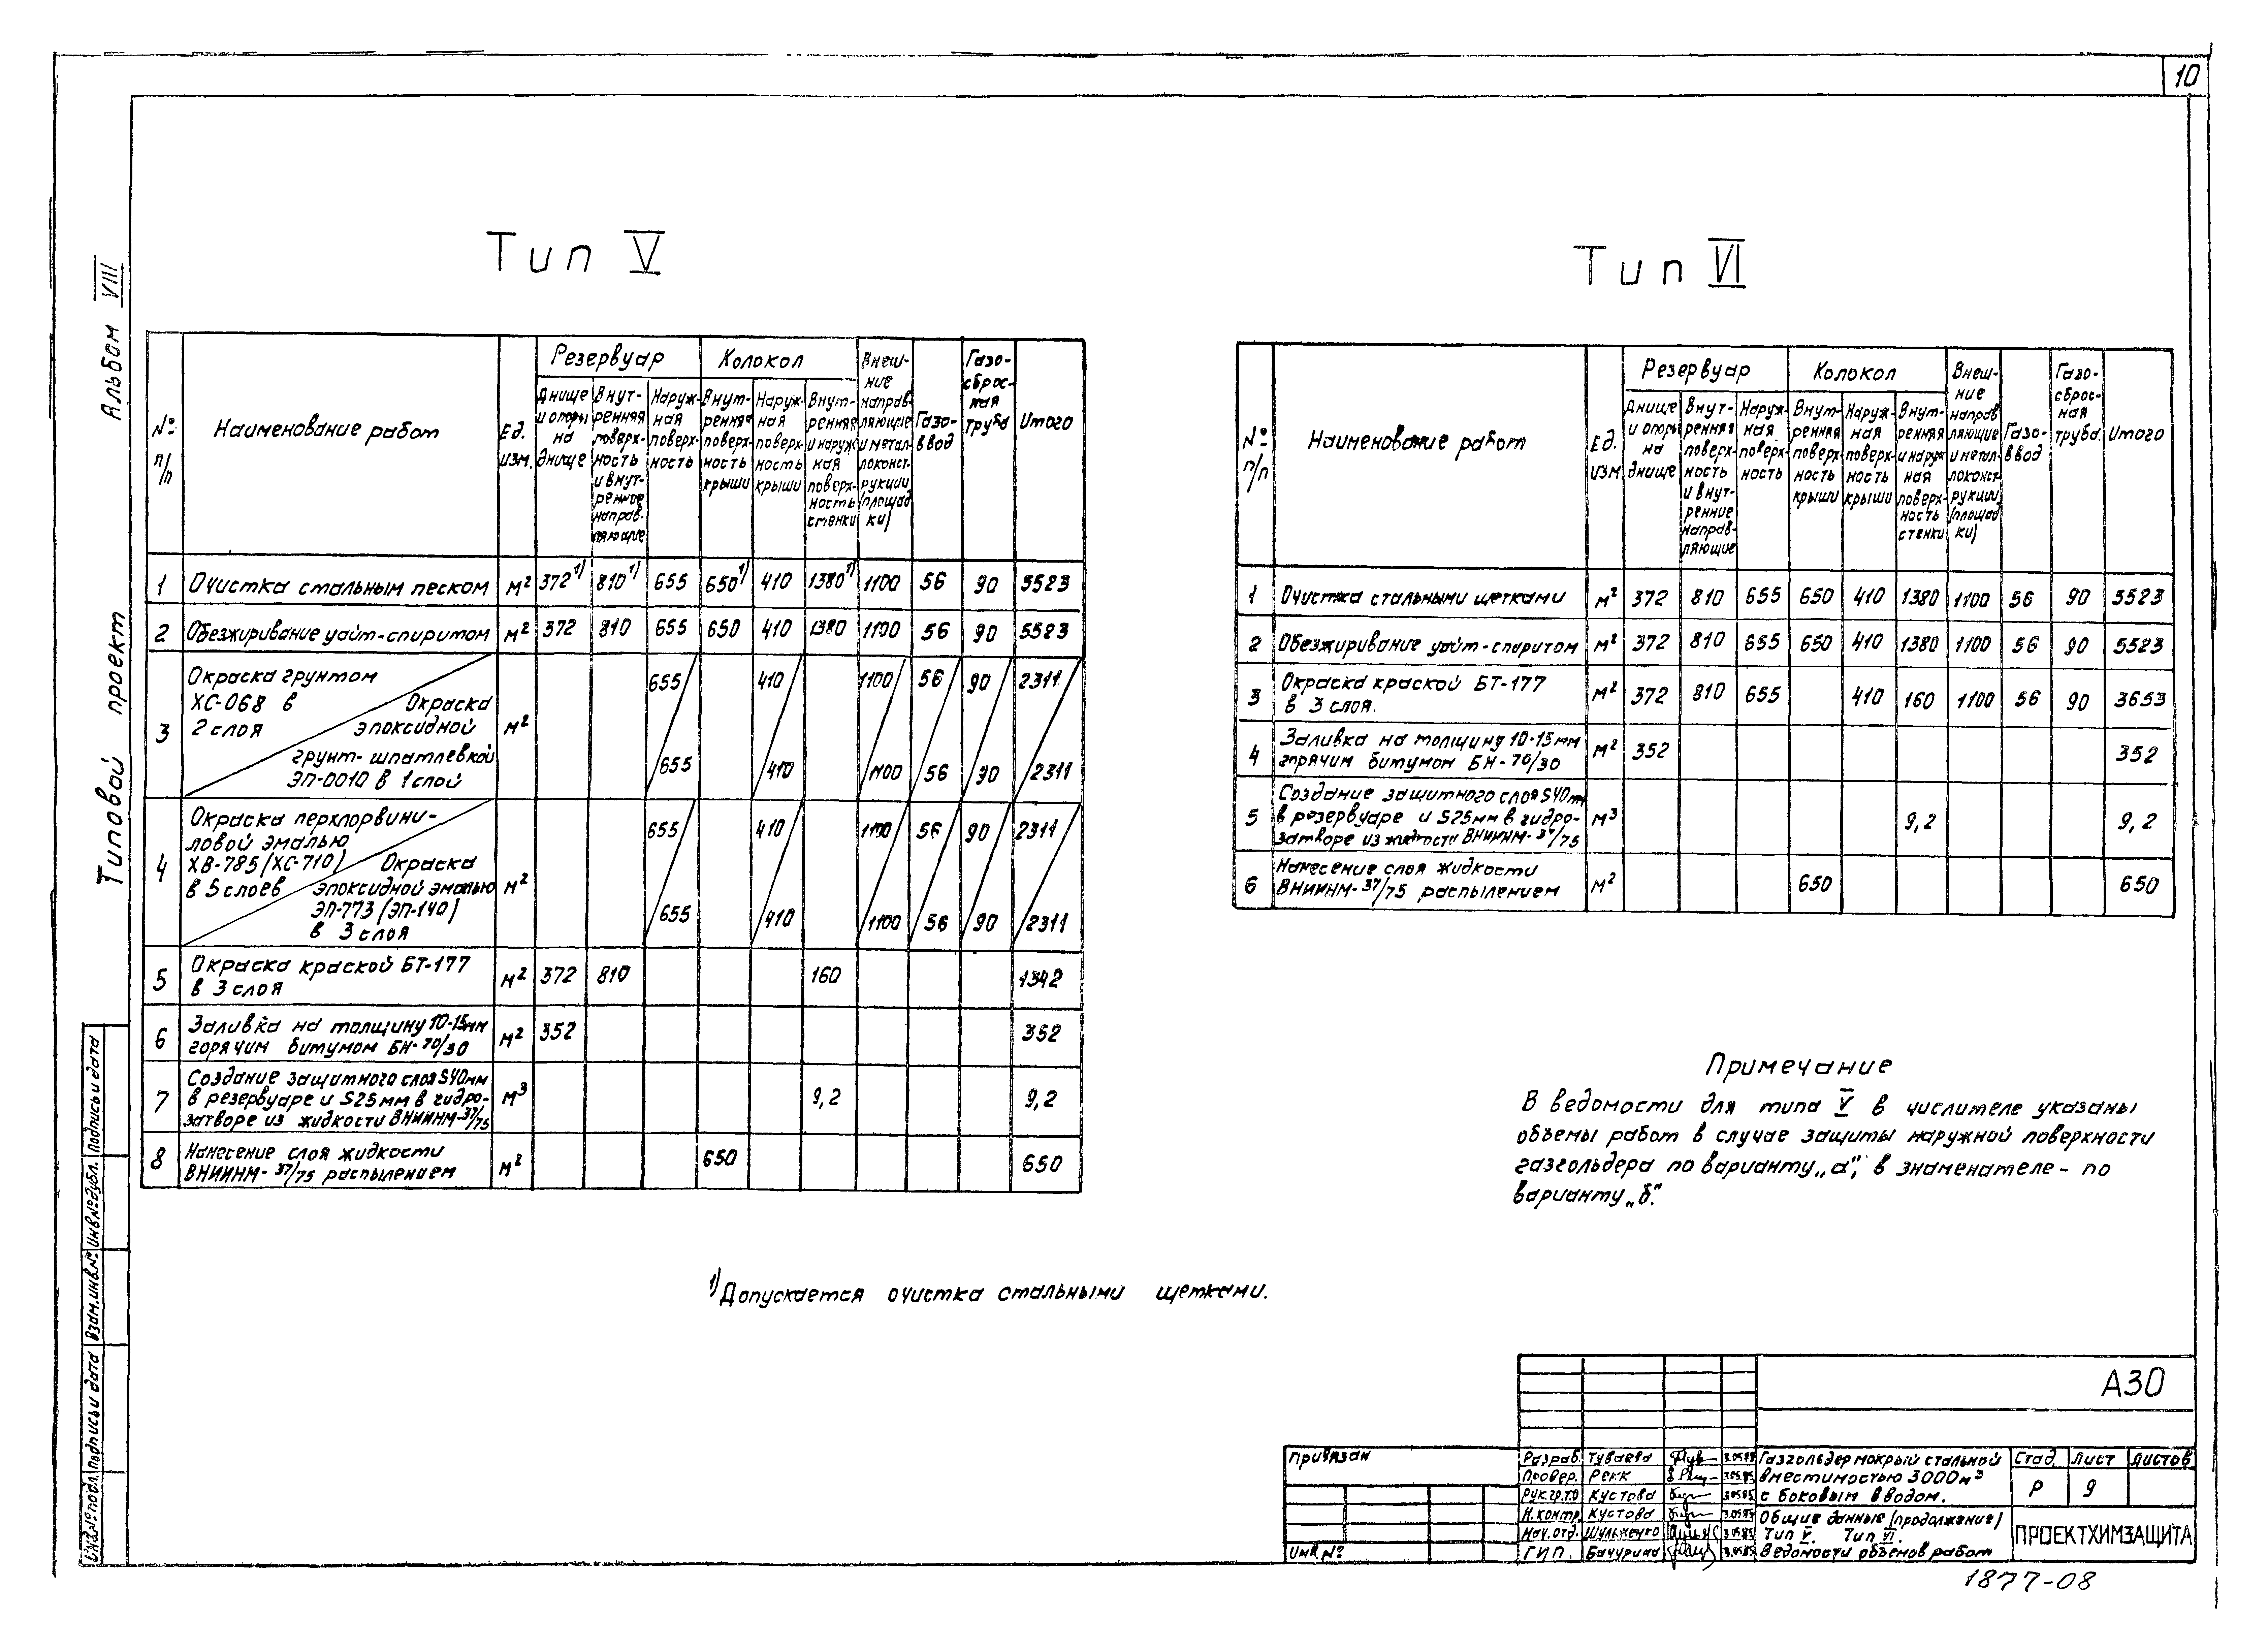 10
Альбом VIII
Типовой проект
Тип V
№ п/п
Наименование работ
Ед. изм.
Резервуар
Колокол
Днище и опоры на днище
Внутренняя поверхность и внутренние направляющие
Наружная поверхность
Внутренняя поверхность крыши
Наружная поверхность крыши
Внутренняя и наружная поверхность стенки
Внешние направляющие и металлоконструкции /площадки/
Газоввод
Газосбросная труба
Итого
1 Очистка стальным песком м² 372¹⁾ 810¹⁾ 655 650¹⁾ 410 1380¹⁾ 1100 56 90 5523
2 Обезжиривание уайт-спиритом м² 372 810 655 650 410 1380 1100 56 90 5523
3 Окраска грунтом ХС-068 в 2 слоя м² 655 410 1100 56 90 2311
Окраска эпоксидной грунт-шпатлевкой ЭП-0010 в 1 слой 655 410 1100 56 90 2311
4 Окраска перхлорвиниловой эмалью ХВ-785 (ХС-710) в 5 слоев м² 655 410 1100 56 90 2311
Окраска эпоксидной эмалью ЭП-773 (ЭП-140) в 3 слоя 655 410 1100 56 90 2311
5 Окраска краской БТ-177 в 3 слоя м² 372 810 160 1342
6 Заливка на толщину 10-15 мм горячим битумом БН-70/30 м² 352 352
7 Создание защитного слоя S40мм в резервуаре и S25мм в гидрозатворе из жидкости ВНИИНМ-37/75 м³ 9,2 9,2
8 Нанесение слоя жидкости ВНИИНМ-37/75 распылением м² 650 650
¹⁾Допускается очистка стальными щетками.
Тип VI
№ п/п
Наименование работ
Ед. изм.
Резервуар
Колокол
Днище и опоры на днище
Внутренняя поверхность и внутренние направляющие
Наружная поверхность
Внутренняя поверхность крыши
Наружная поверхность крыши
Внутренняя и наружная поверхность стенки
Внешние направляющие и металлоконструкции /площадки/
Газоввод
Газосбросная труба
Итого
1 Очистка стальными щетками м² 372 810 655 650 410 1380 1100 56 90 5523
2 Обезжиривание уайт-спиритом м² 372 810 655 650 410 1380 1100 56 90 5523
3 Окраска краской БТ-177 в 3 слоя. м² 372 810 655 410 160 1100 56 90 3653
4 Заливка на толщину 10-15мм горячим битумом БН-70/30 м² 352 352
5 Создание защитного слоя S40мм в резервуаре и S25мм в гидрозатворе из жидкости ВНИИНМ-37/75 м³ 9,2 9,2
6 Нанесение слоя жидкости ВНИИНМ-37/75 распылением м² 650 650
Примечание
В ведомости для типа V в числителе указаны
объемы работ в случае защиты наружной поверхности
газгольдера по варианту „а", в знаменателе - по
варианту „б".
АЗО
Привязан
Инв. №
Разраб. Туваева 3.05.85
Провер. Рекк 3.05.85
Рук.гр.т.о Кустова 3.05.85
Н.контр. Кустова 3.05.85
Нач.отд. Шульженко 3.05.85
ГИП. Бачурина 3.05.85
Газгольдер мокрый стальной
вместимостью 3000 м³
с боковым вводом.
Общие данные (продолжение)
Тип V. Тип VI.
Ведомости объемов работ
Стад. Лист Листов
Р 9
ПРОЕКТХИМЗАЩИТА
1877-08
Инв.№ подл. Подпись и дата Взам.инв.№ Инв.№ дубл. Подпись и дата